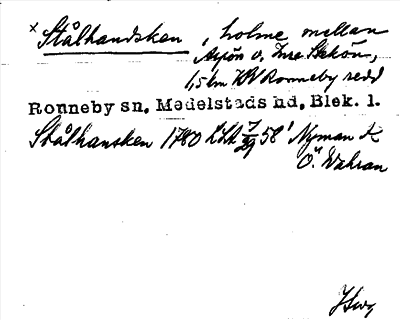 x Stålhandsken, holme mellan
Aspön o. Inre Stekön,
1,5 km NV Ronneby redd
Ronneby sn, Medelstads hd, Blek. l.
Stålhansken 1780 58' Nyman K
Ö. Wahran